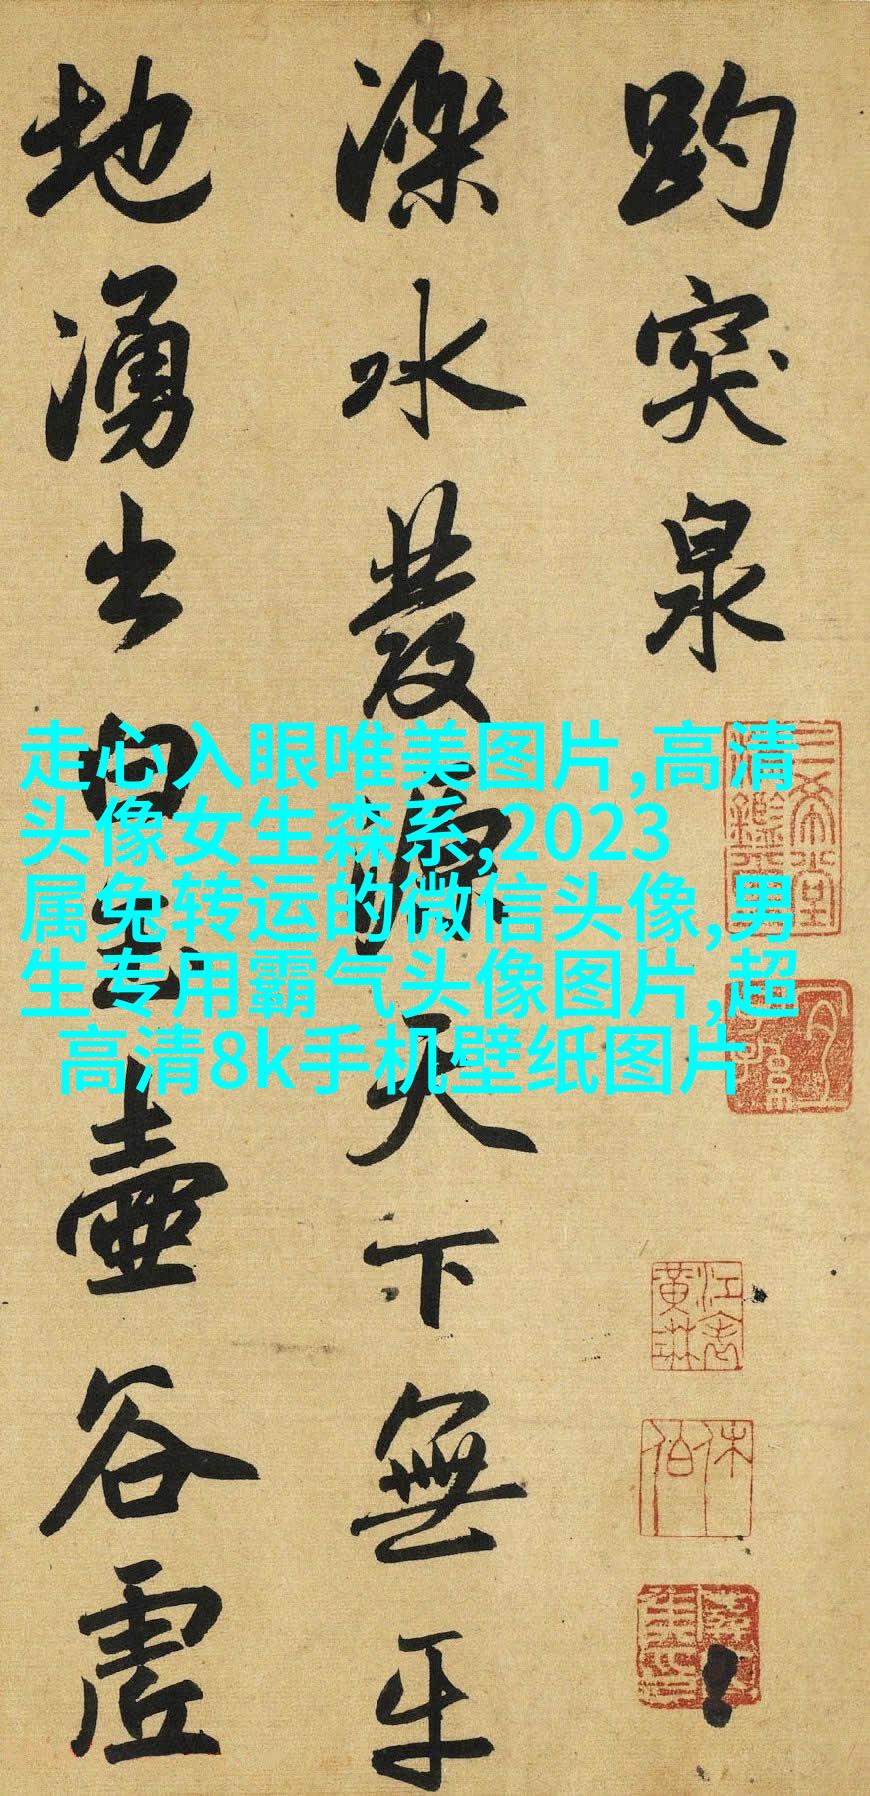 趵突泉
濼水發源天下無平
地湧出白玉壺谷虛
走心入眼唯美图片,高清
头像女生森系,2023
属兔转运的微信头像,男
生专用霸气头像图片,超
高清8k手机壁纸图片